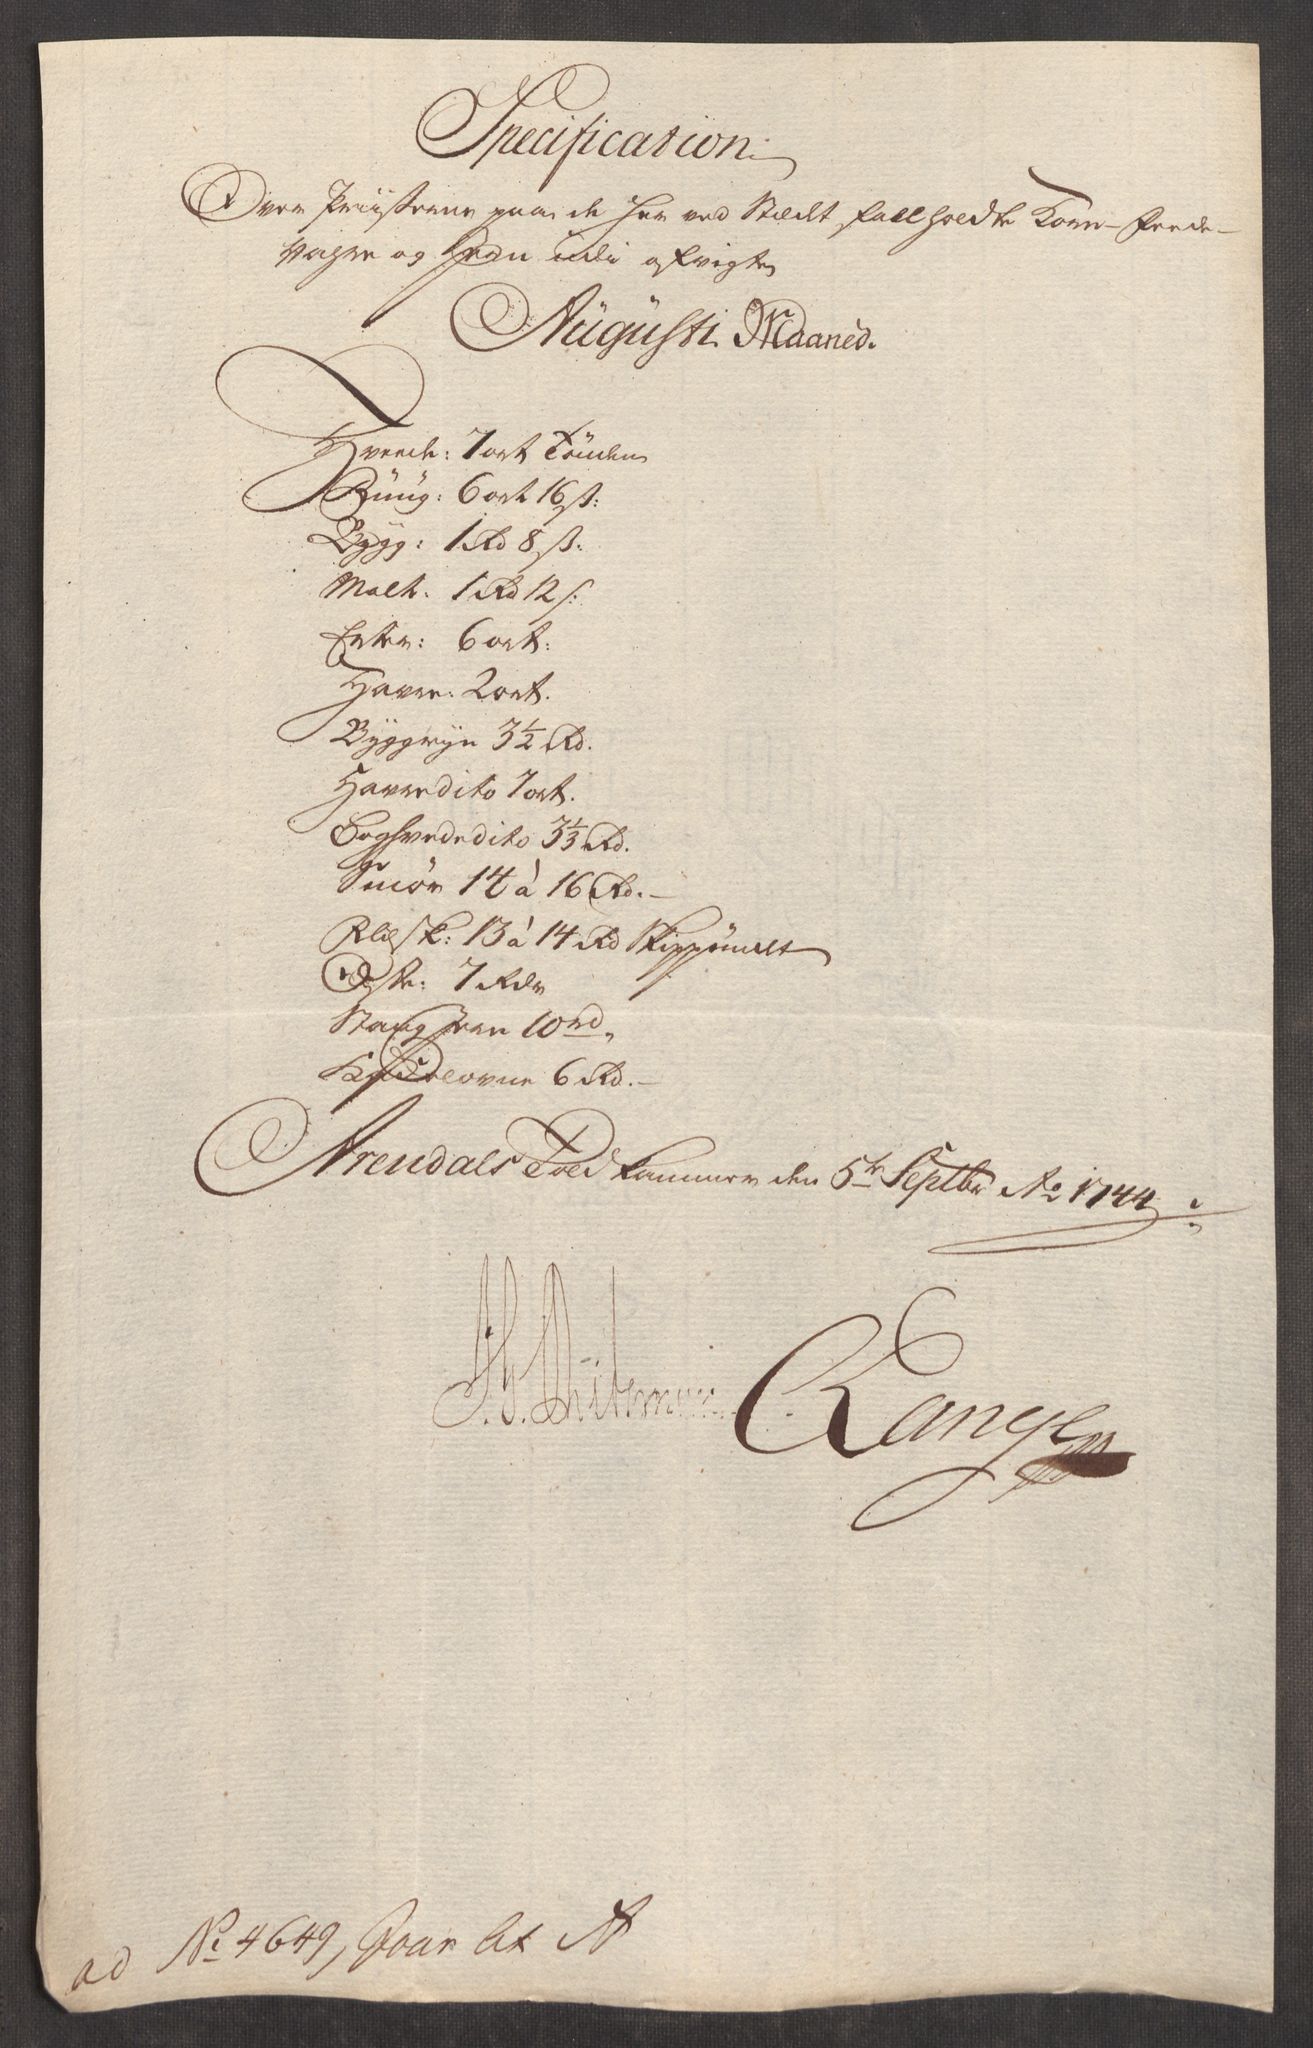 Specification
Over Priiserne paa de her ved Stædt fallholdte Korn- Fæede-
Vahre og Jern udi afvigte
Augusti Maaned.
Hveede: 7 ort Tönden
Rüüg: 6 ort 16 ß:
Bygg: 1 Rd 8 ß:
Malt. 1 Rd 12 ß:
Erter: 6 ort:
Havre: 2 ort.
Byggryn 3½ Rd.
Havre dito 7 ort.
Boghvede dito 3⅓ Rd.
Smör 14 à 16 Rd. -
Flesk: 13 à 14 Rd Skippündt
Oste: 7 Rdr
Stang Jern 10 rd
Kackelovne 6 Rd. -
Arendals Toldkammer den 5te Septbr Ao 1744
Range
ad No 4649, Poar Lit A